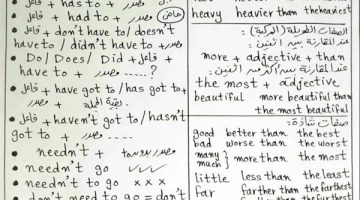 فاعل + has to + مصدر
فاعل + had to + مصدر (ماضي)
فاعل + don't have to / doesn't
have to / didn't have to + مصدر
Do / Does / Did + فاعل +
have to + مصدر ......?
فاعل + have got to / has got to +
مصدر + بقية الجملة
فاعل + haven't got to / hasn't
got to + مصدر
needn't + مصدر بدون to
needn't go ✓✓✓
needn't to go xxx
don't need to go = don't
heavy heavier than the heaviest
الصفات الطويلة (المركبة):
عند المقارنة بين اثنين:
more + adjective + than
عند المقارنة بين أكثر من اثنين:
the most + adjective
beautiful more beautiful than
the most beautiful
صفات شاذة:
good better than the best
bad worse than the worst
many
much } more than the most
little less than the least
far farther than the farthest
further than the furthest